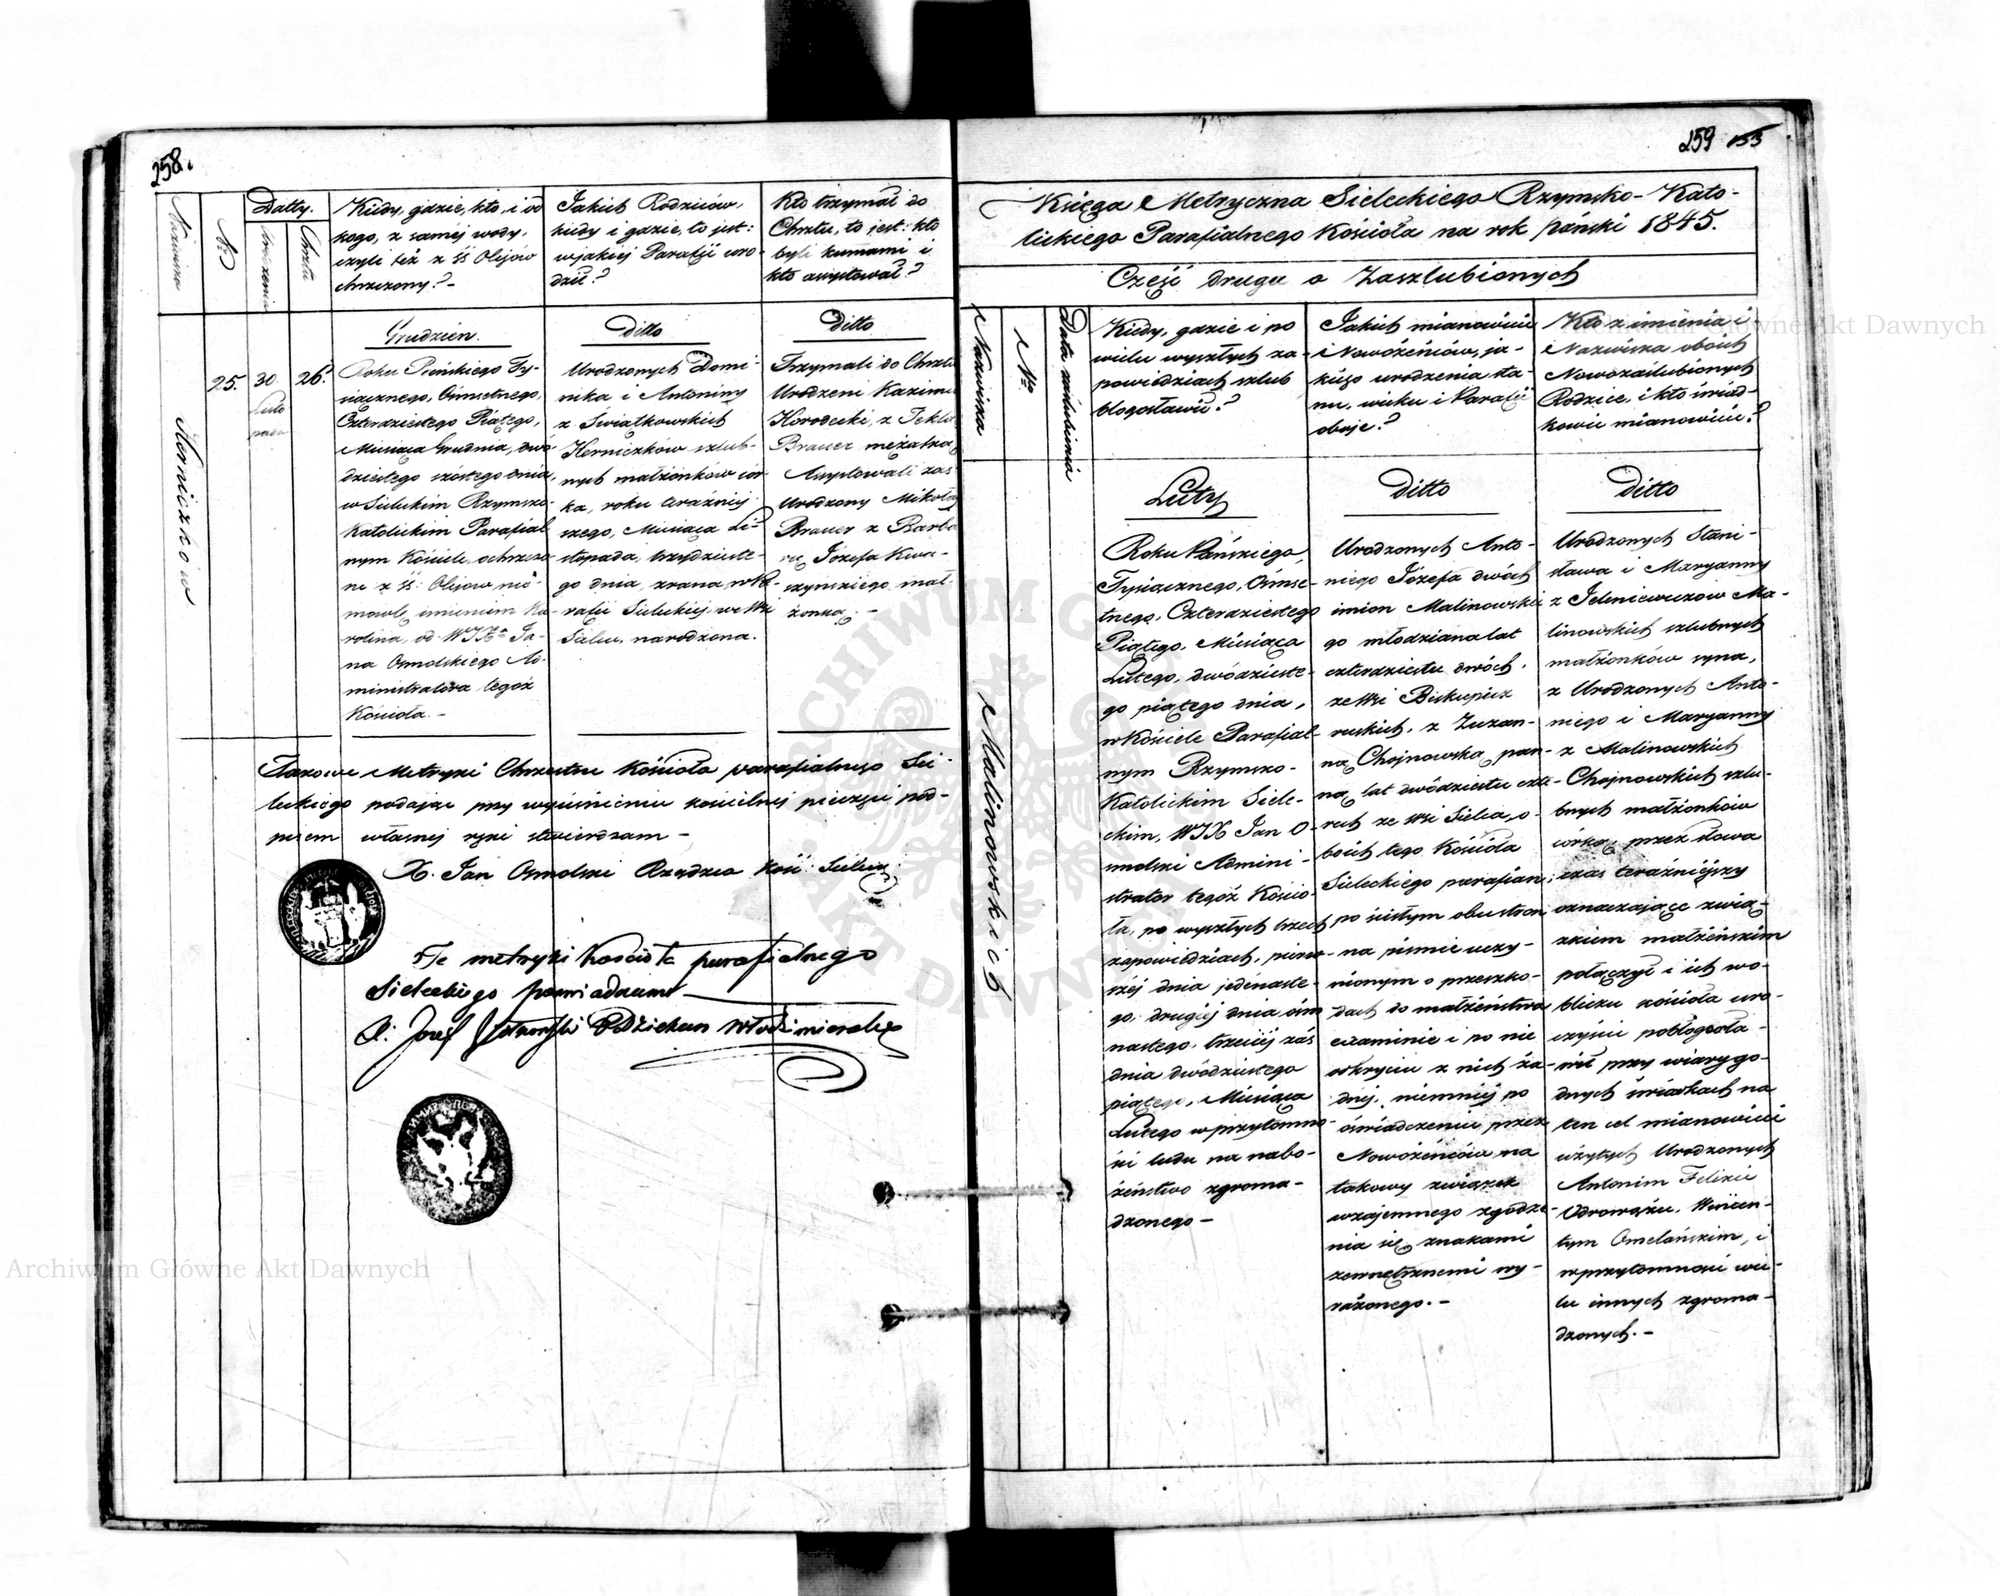 258.
Nazwiska
No
Datty.
Urodzenia
Chrztu
Kiedy, gdzie, kto, i od
kogo, z samej wody,
czyli też z SS Olejów
chrzczony? -
Jakich Rodziców,
kiedy i gdzie, to jest:
w jakiej Parafii uro-
dził?
Kto trzymał do
Chrztu, to jest: kto
byli kumami i
kto assystował?
Herniczków
25.
30
Listo
pada
26.
Grudzień.
Roku Pańskiego Ty-
siącznego, Ośmsetnego,
Czterdziestego Piątego,
Miesiąca Grudnia, dwó-
dziestego szóstego dnia,
w Sieleckim Rzymsko-
Katolickim Parafial
nym Kościele, ochrzczo
ne z SS: Olejow nie-
mowle, imieniem Ka-
rolina, od WJX Ja-
na Osmolskiego Ad-
ministratora tegoż
Kościoła. -
Ditto
Urodzonych Domi-
nika i Antoniny
z Światkowskich
Herniczków szlub-
nych małżonków cór-
ka, roku teraźniej
szego, Miesiąca Li-
stopada, trzydzieste-
go dnia, zrana, w Pa-
rafii Sieleckiej, we Wsi
Sielcu, narodzona.
Ditto
Trzymali do Chrztu
Urodzeni Kazimi
Horodecki, z Teklą
Brauer mężatką
Assystowali zaś
Urodzony Mikołaj
Brauer z Barba
rą, Józefa Kwa-
szyńskiego mał
żonką. -
Takowe Metryki Chrzestne Kościoła parafialnego Sie-
leckiego podając przy wyciśnieniu kościelnej pieczęci pod-
pisem własnej ręki stwierdzam -
X. Jan Osmolski Rządzca Kość: Sielec:
Te metryki Kościoła parafialnego
Sieleckiego poswiadczam
X. Jozef Dziekan Włodzimierski
259 155
Księga Metryczna Sieleckiego Rzymsko-Kato-
lickiego Parafialnego Kościoła na rok pański 1845.
Część druga o Zaszlubionych
Nazwiska
No
Data zaślubienia
Kiedy, gdzie i po
wielu wyszłych za-
powiedziach szlub
błogosławił?
Jakich mianowicie
Nowożeńców, ja-
kiego urodzenia sta-
nu, wieku i Parafii
oboje?
Kto z imienia i
Nazwiska oboich
Nowozaślubionych
Rodzice, i kto świad-
kowie mianowicie?
Malinowskich
Luty
Roku Pańskiego,
Tysiącznego, Ośmse-
tnego, Czterdziestego
Piątego, Miesiąca
Lutego, dwódzieste-
go piątego dnia,
w Kościele Parafial-
nym Rzymsko-
Katolickim Siele-
ckim, WJX Jan O-
smolski Admini-
strator tegoż Kościo-
ła, po wyszłych trzech
zapowiedziach, pierw-
széj dnia jedenaste-
go, drugiéj dnia ośm
nastego, trzeciéj zaś
dnia dwódziestego
piątego, Miesiąca
Lutego w przytomno-
ści ludu na nabo-
żeństwo zgroma-
dzonego -
Ditto
Urodzonych Anto-
niego Józefa dwóch
imion Malinowskie
go młodziana lat
czterdziestu dwóch,
ze Wsi Biskupicz
ruskich, z Zuzan-
ną Chojnowską pan-
ną lat dwódziestu czte-
rech ze Wsi Sielca, o-
boich tego Kościoła
Sieleckiego parafian;
po ścisłym obustron
na piśmie uczy-
nionym o przeszko-
dach do małżeństwa
examinie i po nie
wkryciu z nich ża-
dnéj, niemniéj po
oświadczeniu przez
Nowożeńców na
takowy związek
wzajemnego zgodze-
nia się, znakami
zewnętrznemi wy-
rażonego. -
Ditto
Urodzonych Stani-
sława i Maryanny
z Jeleniewiczów Ma-
linowskich szlubnych
małżonków syna,
z Urodzonych Anto-
niego i Maryanny
z Malinowskich
Chojnowskich szlu-
bnych małżonków
córką, przez słowa
czas teraźniéjszy
oznaczające zwią-
zkiem małżeńskim
połączył i ich wo-
bliczu kościoła uro-
czyście pobłogosła-
wił przy wiarygo-
dnych świadkach na
ten cel mianowicie
użytych Urodzonych
Antonim Felixie
Odrowążu, Wincen-
tym Omelańskim, i
w przytomności wie-
lu innych zgroma-
dzonych. -
Archiwum Główne Akt Dawnych
Archiwum Główne Akt Dawnych
ARCHIWUM GŁÓWNE AKT DAWNYCH